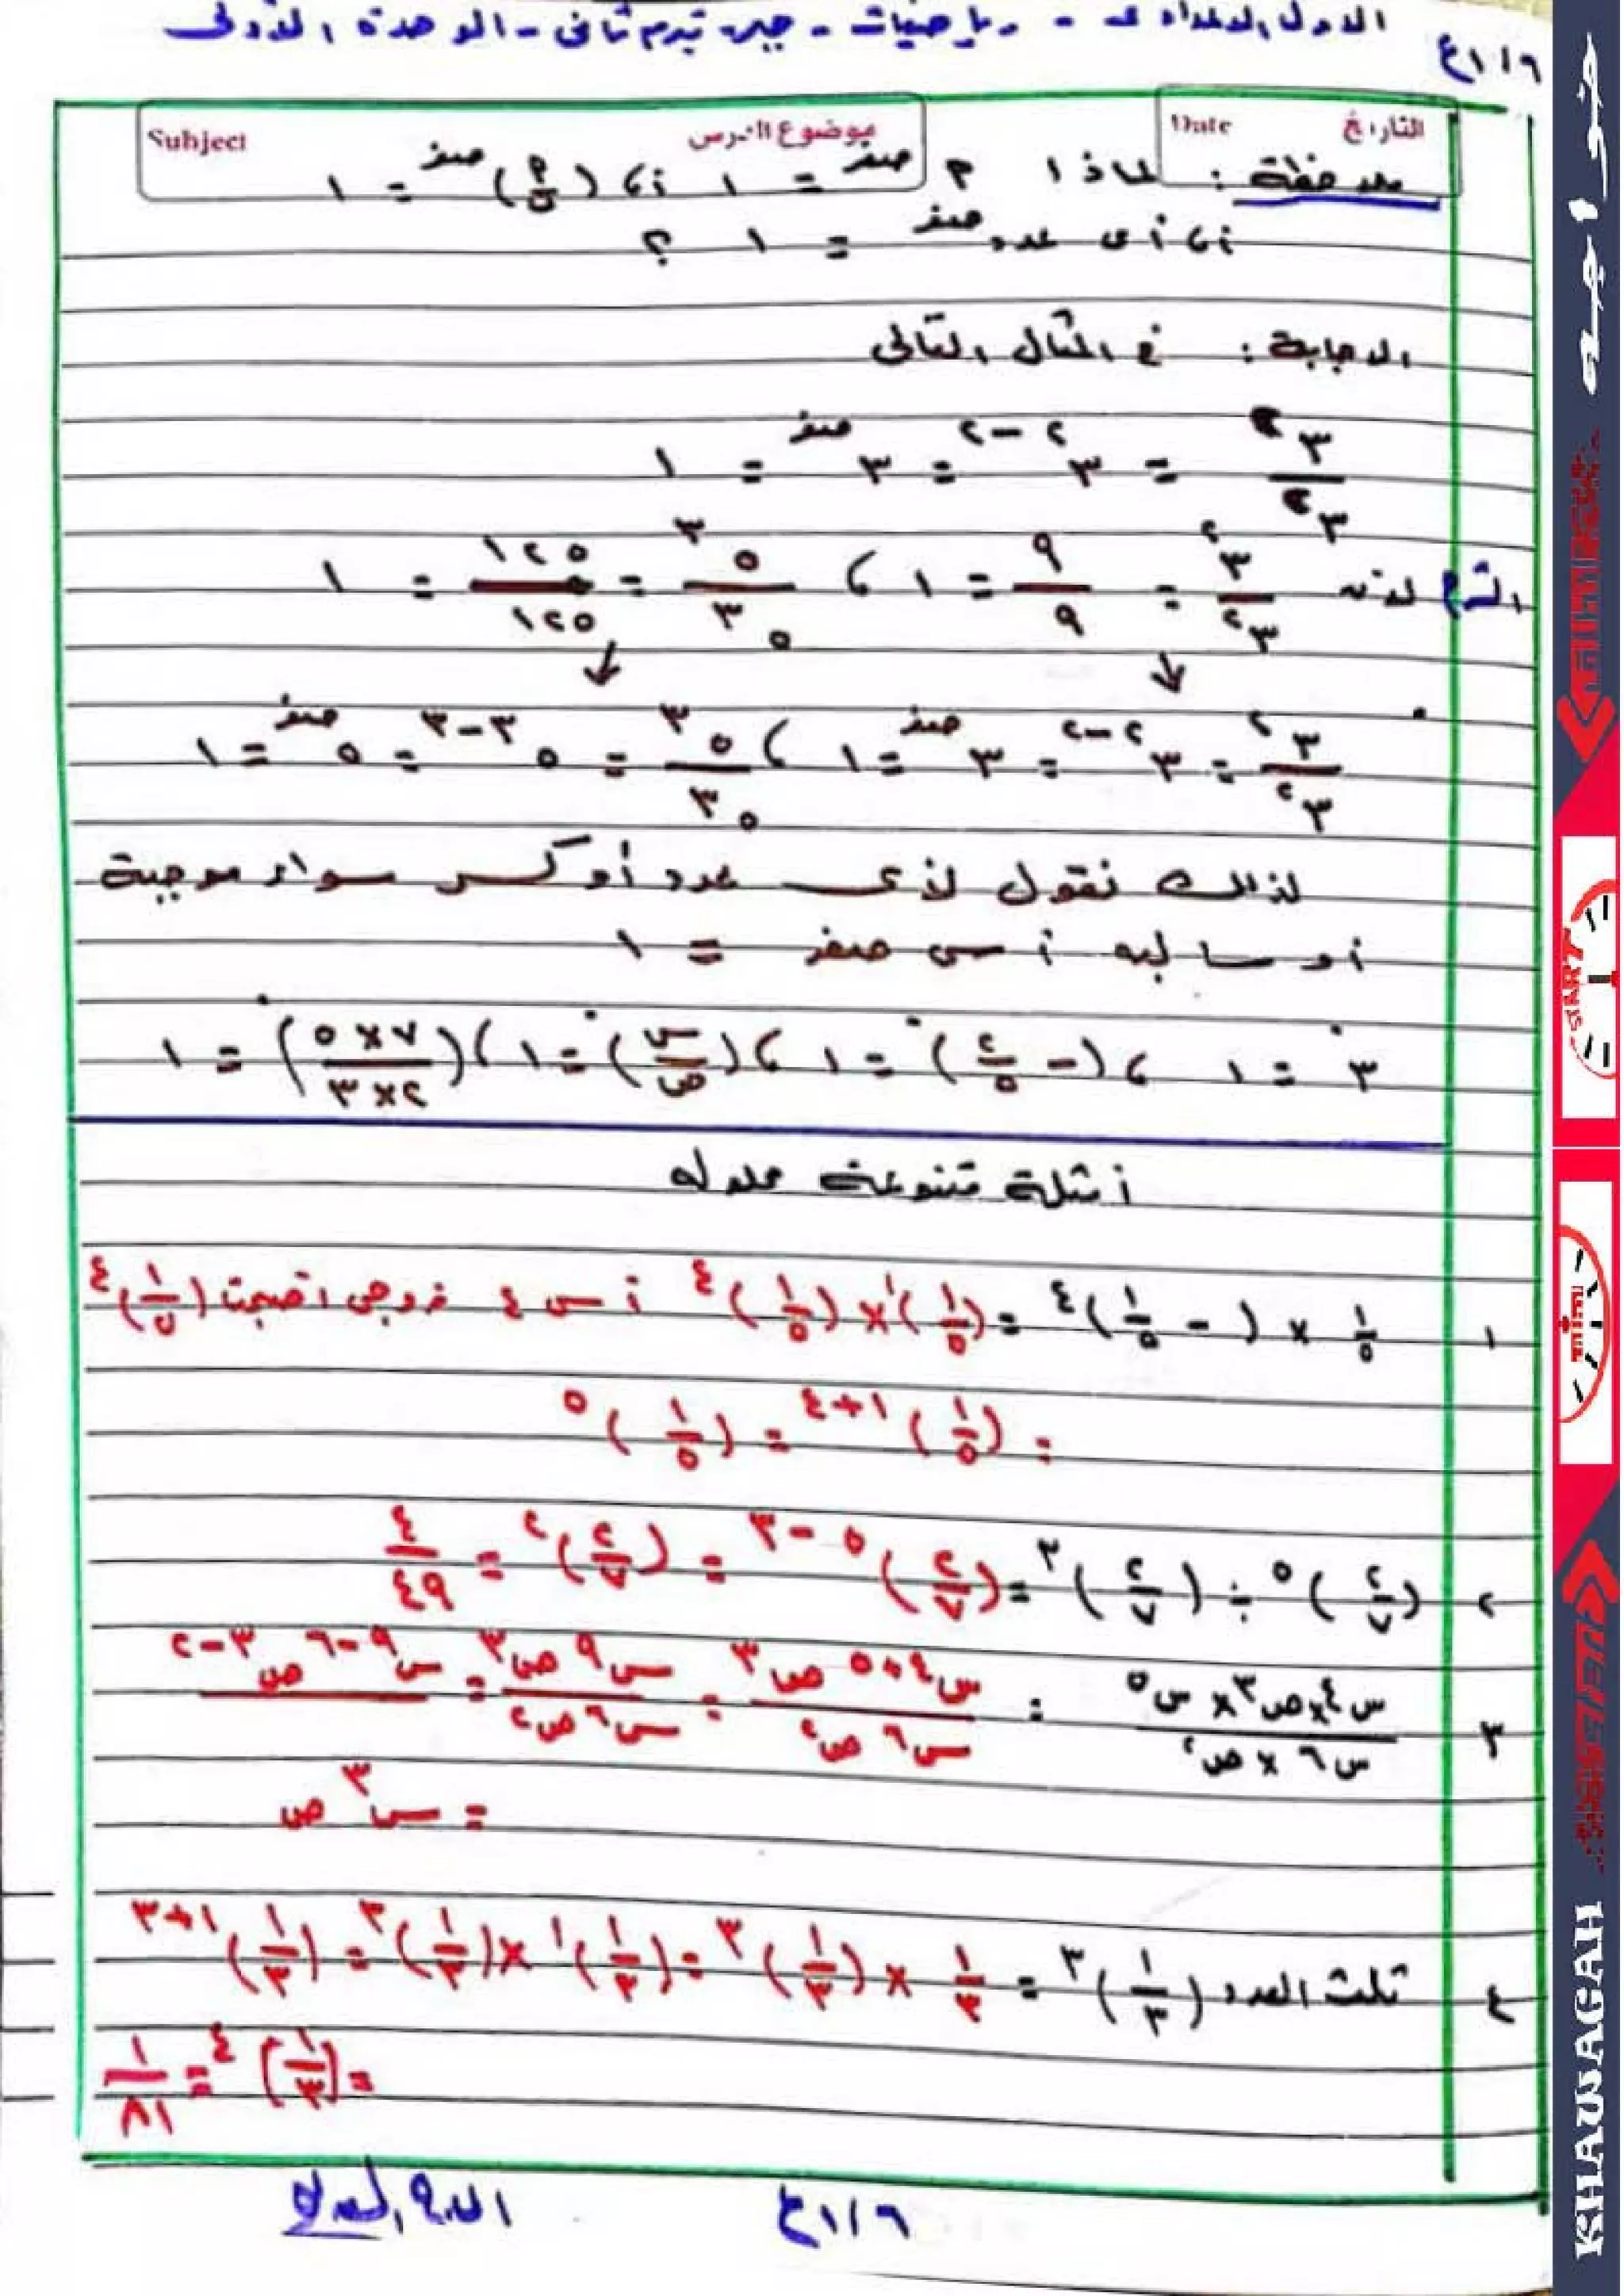 الاول الاعدادى - رياضيات - جبر ترم ثانى - الوحدة الاولى
Subject موضوع الدرس Date التاريخ
ملاحظة : لماذا م^صفر = ١ ، أ، (م/ن)^صفر = ١
أ، أى عدد^صفر = ١ ؟
الاجابة : فى المثال التالى
٣^٢/٣^٢ = ٣^(٢-٢) = ٣^صفر = ١
الشرح لأنه ٣^٢/٣^٢ = ٩/٩ = ١ ، ٥^٣/٥^٣ = ١٢٥/١٢٥ = ١
↓ ↓
٣^٢/٣^٢ = ٣^(٢-٢) = ٣^صفر = ١ ، ٥^٣/٥^٣ = ٥^(٣-٣) = ٥^صفر = ١
لذلك نقول لأى عدد أو كسر سواء موجبة
أو سالبه أسى صفر = ١
٣^٠ = ١ ، (-٢/٥)^٠ = ١ ، (س/ص)^٠ = ١ ، (٧×٥/٢×٣)^٠ = ١
أمثلة متنوعة محلوله
١ ١/٥ × (-١/٥)^٤ = (١/٥)^١ × (١/٥)^٤ أس ٤ زوجى اصبحت (١/٥)^٤
= (١/٥)^(١+٤) = (١/٥)^٥
٢ (٢/٧)^٥ ÷ (٢/٧)^٣ = (٢/٧)^(٥-٣) = (٢/٧)^٢ = ٤/٤٩
٣ س^٤×ص^٣×س^٥/س^٦×ص^٢ = س^(٤+٥) ص^٣/س^٦ ص^٢ = س^٩ ص^٣/س^٦ ص^٢ = س^(٩-٦) ص^(٣-٢)
= س^٣ ص
٤ ثلث العدد (١/٣)^٣ = ١/٣ × (١/٣)^٣ = (١/٣)^١ × (١/٣)^٣ = (١/٣)^(١+٣)
= (١/٣)^٤ = ١/٨١
خواجه
START
KHAWAGAH